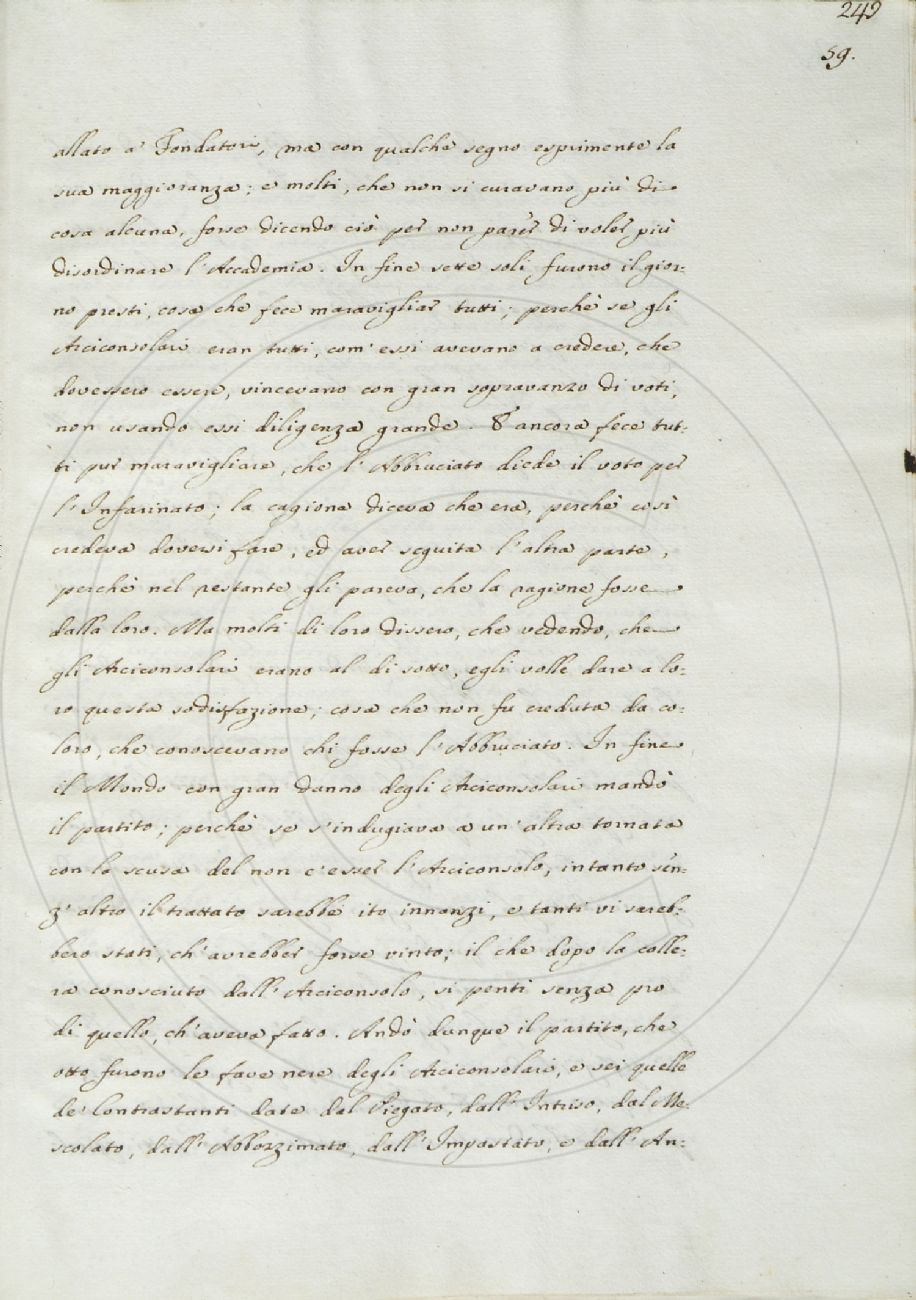 249
59.
allato a' Fondatori, ma con qualche segno esprimente la
sua maggioranza; e molti, che non si curavano più di
cosa alcuna, forse dicendo ciò per non parer di voler più
disordinare l'Accademia. In fine sette soli furono il gior-
no presti, cosa che fece maravigliar tutti; perchè se gli
Arciconsolari eran tutti, com'essi avevano a credere, che
dovessero essere, vincevano con gran sopravanzo di voti,
non usando essi diligenza grande. E ancora fece tut-
ti pur maravigliare, che l'Abbruciato diede il voto per
l'Infarinato; la cagione diceva che era, perchè così
credeva doversi fare, ed aver seguita l'altra parte,
perchè nel restante gli pareva, che la ragione fosse
dalla loro. Ma molti di loro dissero, che vedendo, che
gli Arciconsolari erano al di sotto, egli volle dare a lo-
ro questa sodisfazione; cosa che non fu creduta da co-
loro, che conoscevano chi fosse l'Abbruciato. In fine
il Mondo con gran danno degli Arciconsolari mandò
il partito; perchè se s'indugiava a un'altra tornata
con la scusa del non c'esser l'Arciconsolo, intanto sen-
z'altro il trattato sarebbe ito innanzi, e tanti vi sareb-
bero stati, ch'avrebber forse vinto; il che dopo la colle-
ra conosciuto dall'Arciconsolo, si pentì senza pro
di quello, ch'aveva fatto. Andò dunque il partito, che
otto furono le fave nere degli Arciconsolari, e sei quelle
de' Contrastanti date dal Piegato, dall'Intriso, dal Me-
scolato, dall'Abbozzimato, dall'Impastato, e dall'An-